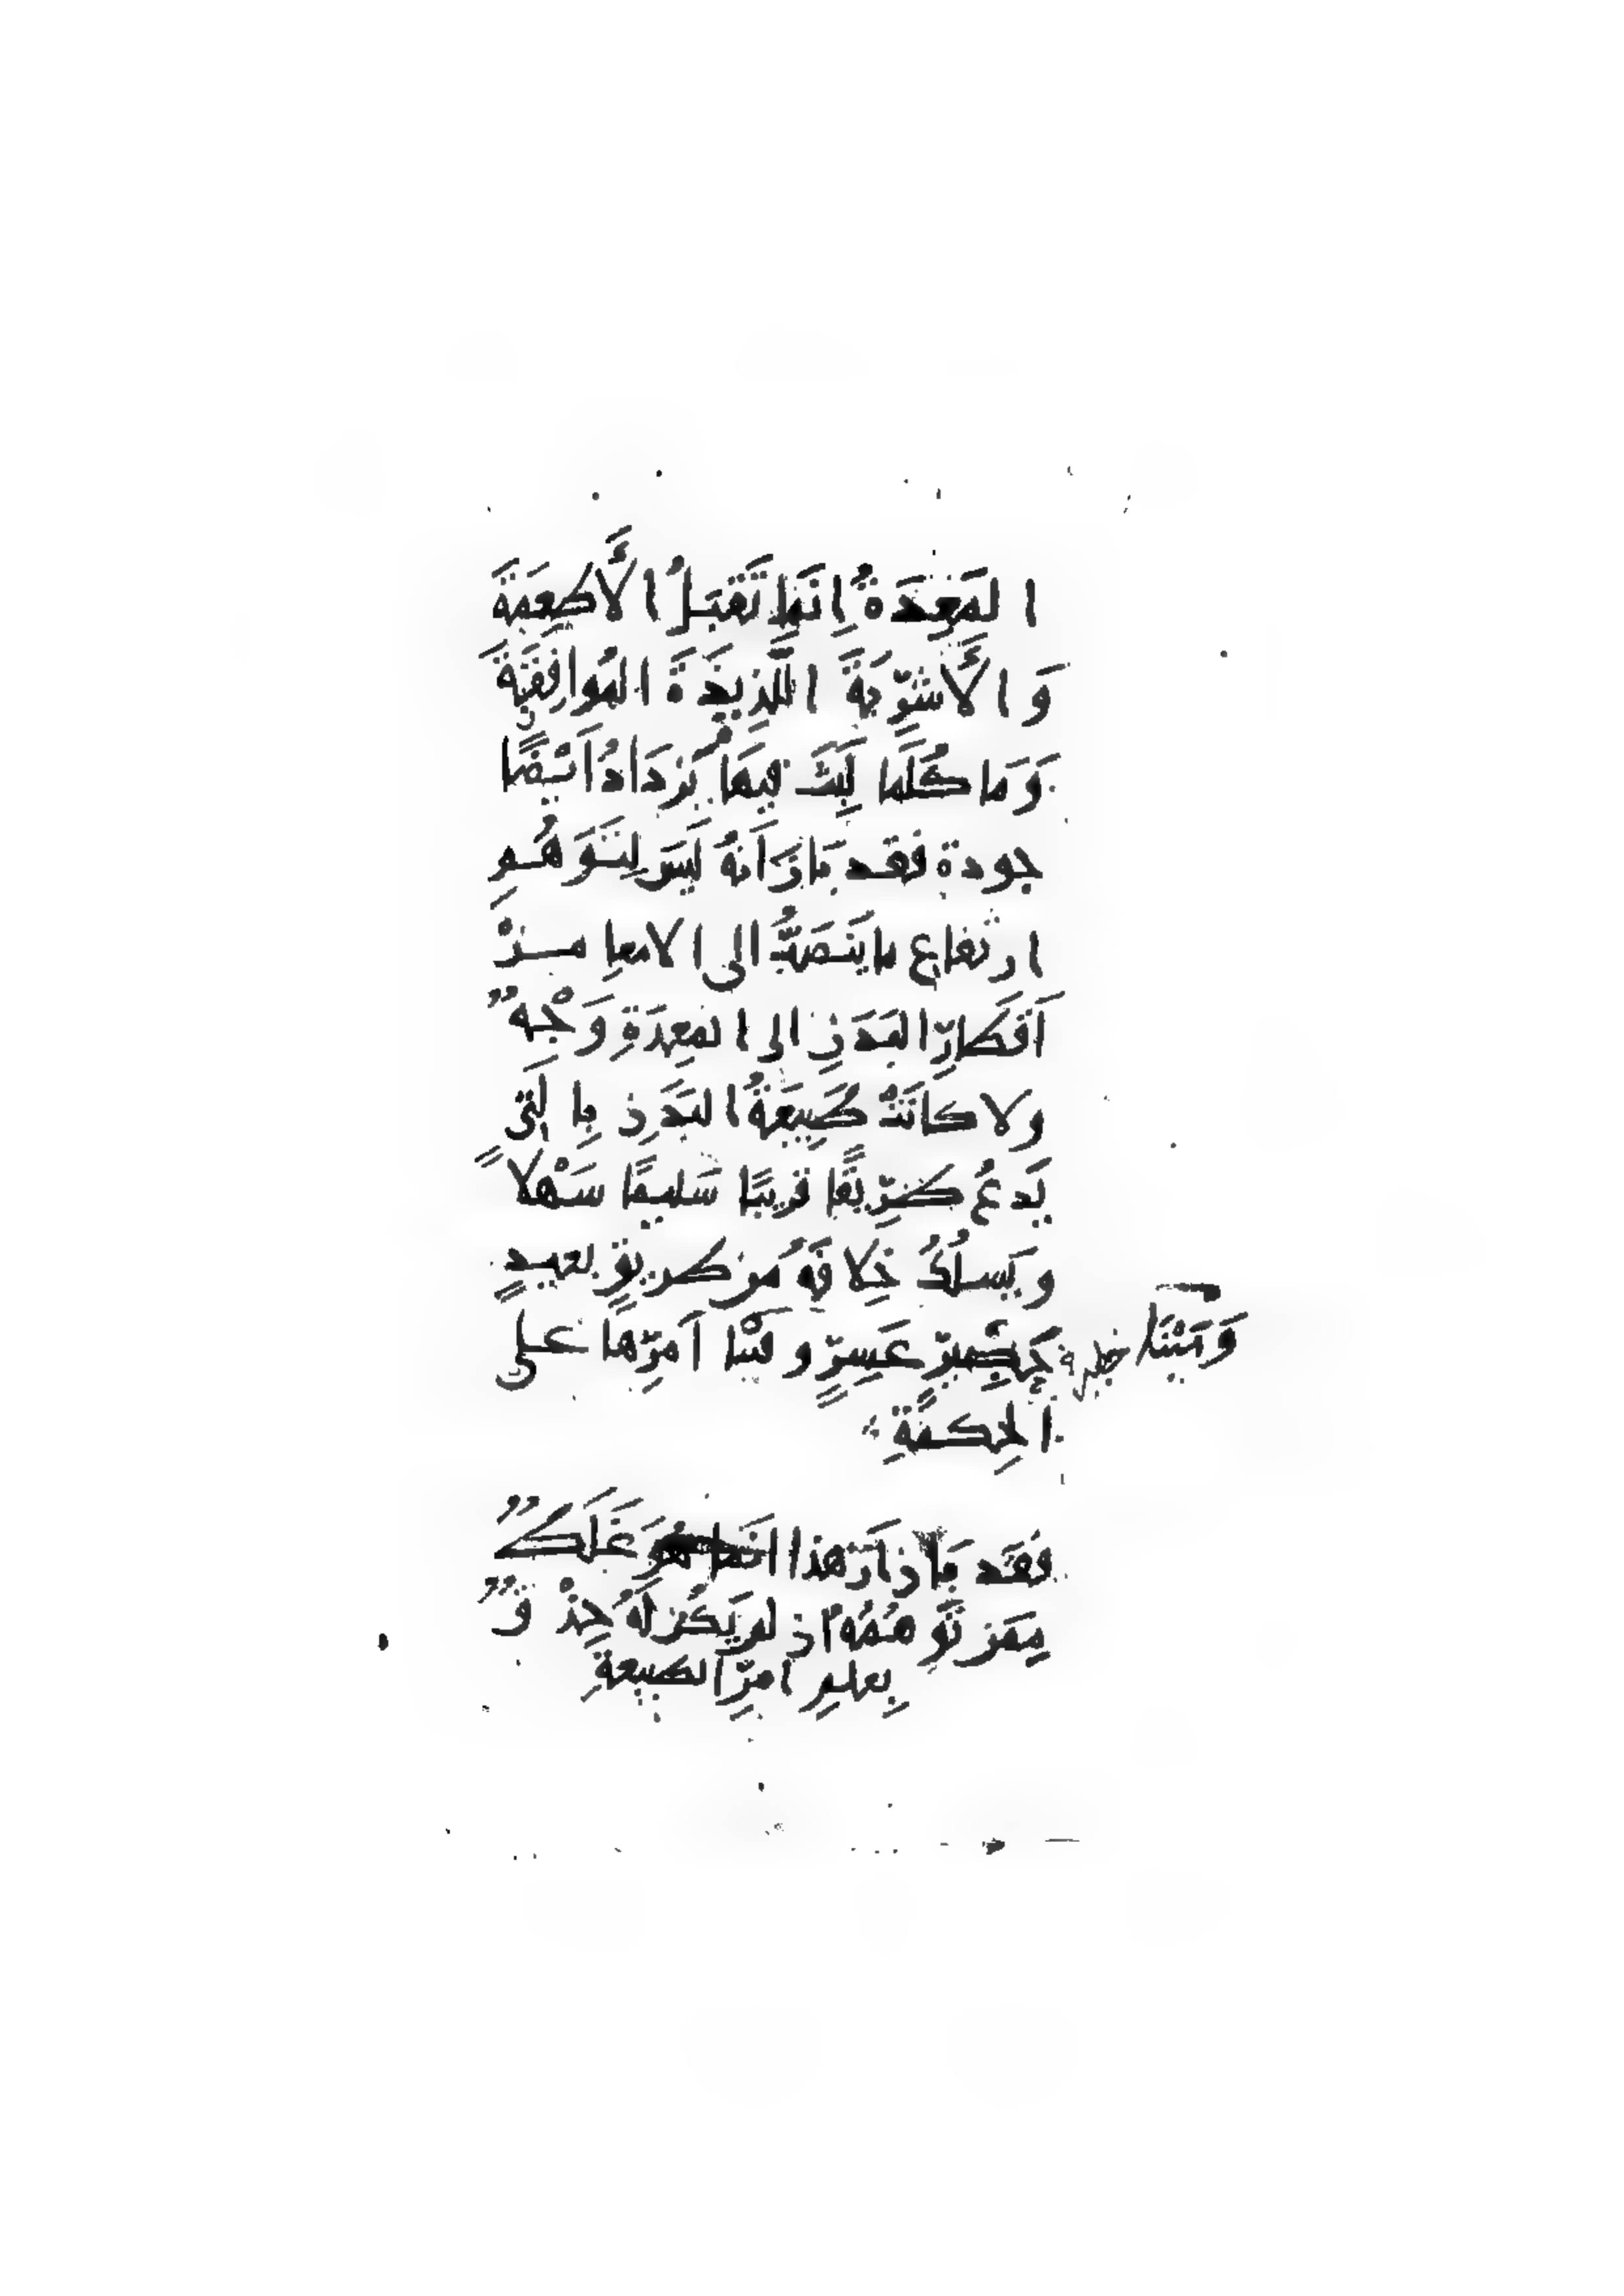 المَعِدَةُ اِنَّمَا تَقبَلُ الأَطعِمَةَ
وَالأَشرِبَةَ اللَّذِيذَةَ المُوافِقَةَ
وَمَا كُلَّمَا لَبِثَ فِيهَا يَزدَادُ اَيْضًا
جودة فقد بَانَ اَنهُ لَيسَ لِتَوَهُّمِ
ارتفاع ما يَنصَبُّ الى الامعا مــنْ
اَقطَارِ البَدَنِ الى المَعِدَةِ وَجْهٌ
ولا كانَتْ طَبِيعَةُ البَدَنِ بِالَّتِي
يَدَعُ طَرِيقًا قريبًا سَلِيمًا سَهْلاً
ويَسلُكُ خِلافَهُ مِن طريقٍ بعيدٍ
عَسِرٍ امرِهَا على
وَبَيْنَا
الحِكمَةِ
فَقَد بَانَ اَن هذا انَّمَا هُوَ غَلَطٌ
مِمَّن تَوَهَّمَهُ اذ لم يَكُن لَهُ حِذْقٌ
بِعلمِ امرِ الطبيعةِ